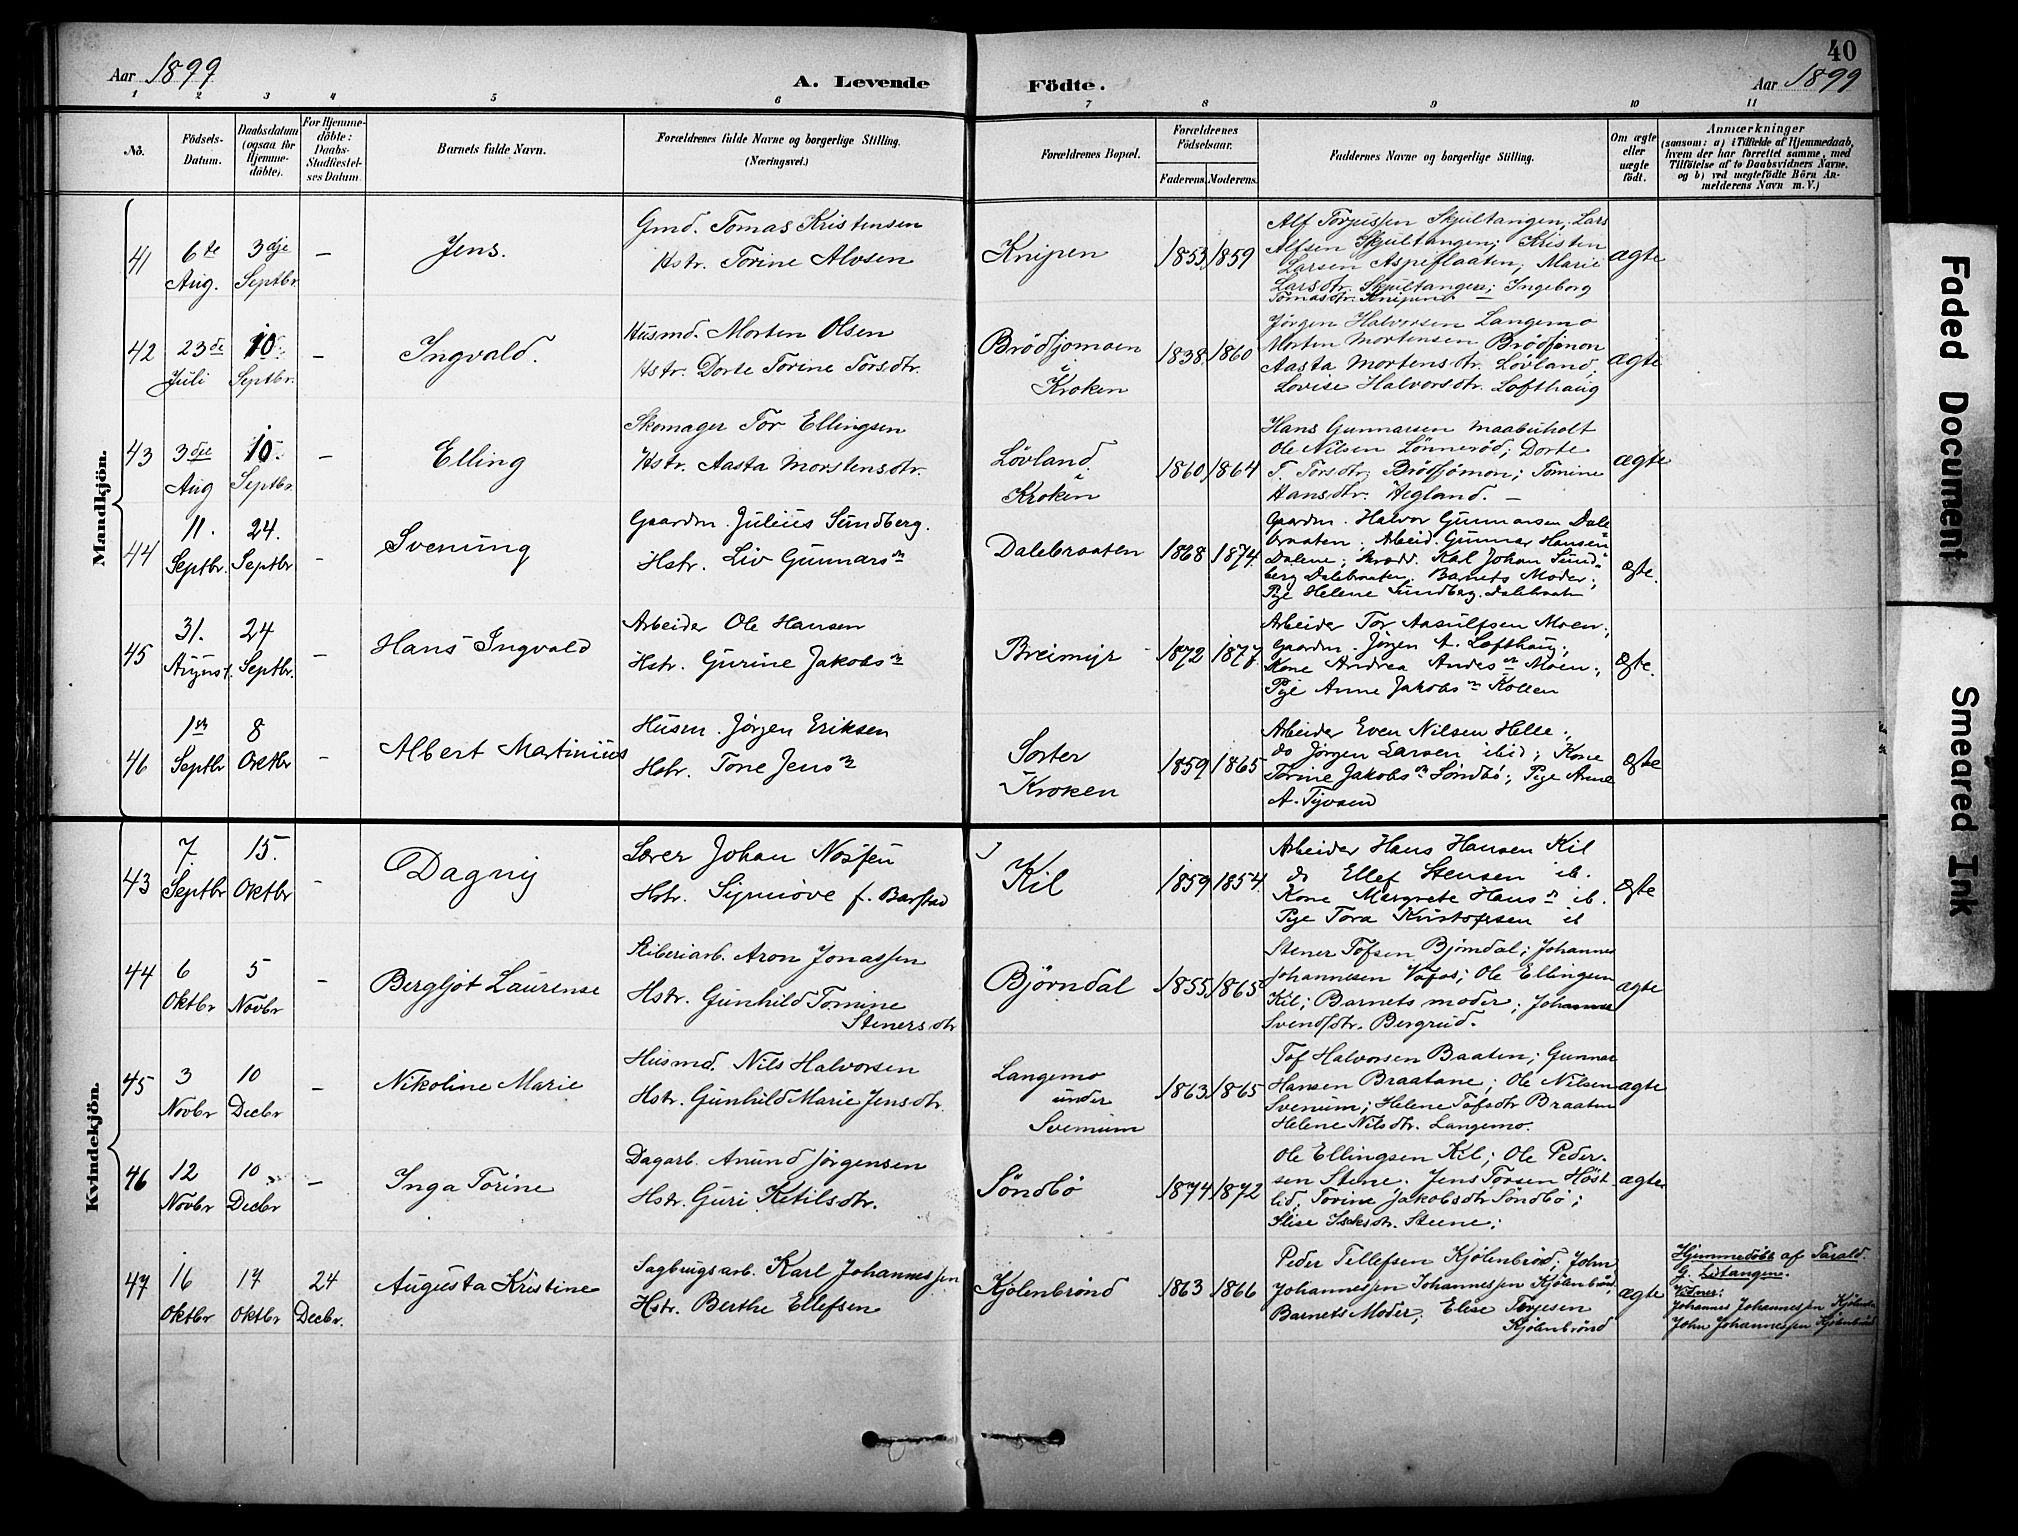 40
Aar 1899
A. Levende Födte.
Aar 1899
1 2 3 4 5 6 7 8 9 10 11
No.
Födsels-
Datum.
Daabsdatum
(ogsaa for
Hjemme-
döbte).
For Hjemme-
döbte:
Daabs-
Stadfæstel-
ses Datum.
Barnets fulde Navn.
Forældrenes fulde Navne og borgerlige Stilling.
(Næringsvei.)
Forældrenes Bopæl.
Forældrenes
Födselsaar.
Faderens. Moderens.
Faddernes Navne og borgerlige Stilling.
Om ægte
eller
uægte
födt.
Anmærkninger
(saasom: a) i Tilfælde af Hjemmedaab,
hvem der har forrettet samme, med
Tilföielse af to Daabsvidners Navne.
og b) ved uægtefödte Börn An-
melderens Navn m. V.)
Mandkjön.
41
6te
Aug.
3dje
Septbr
–
Jens.
Gmd. Tomas Kristensen
Hstr. Torine Alvsen
Knipen
1853
1859
Alf Torjussen Skjultangen, Lars
Alfsen Skjultangen; Kristen
Larsen Aspeflaaten; Marie
Larsdtr. Skjultangen; Ingeborg
Tomasdtr. Knipen –
ægte
42
23de
Juli
10.
Septbr.
–
Ingvald.
Husmd. Morten Olsen
Hstr. Dorte Torine Torsdtr.
Brödsjomoen
i
Kroken
1838
1860
Jørgen Halvorsen Langemo
Morten Mortensen Brödsjomon
Aasta Mortensdtr. Løvland.
Lovise Halvorsdtr. Lofthaug
ægte
43
3die
Aug
10.
Septbr
–
Elling
Skomager Tor Ellingsen
Hstr. Aasta Morstensdtr.
Løvland
i
Kroken
1860
1864
Hans Gunnarsen Maabuholt
Ole Nilsen Lönnerød; Dorte
T. Torsdtr. Brödsjömon; Tomine
Hansdtr. Hegland. –
ægte
44
11.
Septbr.
24.
Septbr
–
Svenung
Gaardm. Julius Sundberg.
Hstr. Liv Gunnarsdr
Dalebraaten
1868
1874.
Gaardm. Halvor Gunnarsen Dale
braaten. Arbeid. Gunnar Hansen
Dalene; Skrædd. Karl Johan Sund-
berg Dalebraaten. Barnets Moder;
Pge Helene Sundberg. Dalebraaten
Ægte.
45
31.
August.
24
Septbr.
–
Hans Ingvald
Arbeider Ole Hansen
Hstr. Gurine Jakobsdr
Breimyr
1872
1877
Arbeider Tor Aasulfsen Moen;
Gaardm. Jørgen A. Lofthaug;
Kone Andrea Andesdr Moen;
Pige Anne Jakobsdr Kollen
Ægte.
46
1st
Septbr
8
Oktbr
–
Albert Martinius
Husm. Jørgen Eriksen
Hstr. Tone Jensdr
Sorter
Kroken
1859
1865
Arbeider Even Nilsen Helle;
do Jørgen Larsen ibid; Kone
Torine Jakobsdr Söndbö; Pige Anne
A.
Ægte
Kvindekjön.
43
7.
Septbr
15.
Oktbr
–
Dagny
Lærer Johan Nossen
Hstr. Synnöve f. Barstad
Kil
1859
1854.
Arbeider Hans Hansen Kil
do Ellef Stensen ib.
Kone Margrete Hansdr ib.
Pige Tora Kristofersen ib
Ægte
44
6
Oktbr
5
Novbr
–
Bergljot Laurense
Sliberiarb. Aron Jonassen
Hstr. Gunhild Tomine
Stenersdtr
Björndal
1855
1865
Stener Tofsen Björndal; Johannes
Johannesen Vafos; Ole Ellingsen
Kil; Barnets moder; Johanne
Svendsdtr. Bergrud.
ægte
45
3
Novbr
10
Decbr
–
Nikoline Marie
Husmd. Nils Halvorsen
Hstr. Gunhild Marie Jensdtr
Langemo
under
Svenum
1863
1865
Tof Halvorsen Baaten; Gunnar
Hansen Braatane; Ole Nilsen
Svenum; Helene Tofsdtr Braaten
Helene Nilsdtr. Langemo.
ægte
46
12
Novbr
10
Decbr
–
Inga Torine
Dagarb. Anund Jörgensen
Hstr. Guri Ketilsdtr.
Söndbö
1874
1872
Ole Ellingsen Kil; Ole Peder-
sen Stene. Jens Torsen Höst
lid; Torine Jakobsdtr Söndbö;
Elise Isaksdtr. Steene;
ægte
47
16
Oktbr
17
Oktbr
24
Decbr.
Augusta Kristine
Sagbrugsarb. Karl Johannessen
Hstr. Berthe Ellefsen
Kjölenbrönd
1863
1866
Peder Tellefsen Kjölenbröd; John
Johannessen Johannessen Kjölenbrönd
Barnets Moder; Elise Terjesen
Kjölenbrönd
ægte
Hjemmedöbt af Tarald
G. Litangen.
Vidner:
Johannes Johannessen Kjölenbr
John Johannessen Kjölenbrönd
Faded Document
Smeared Ink